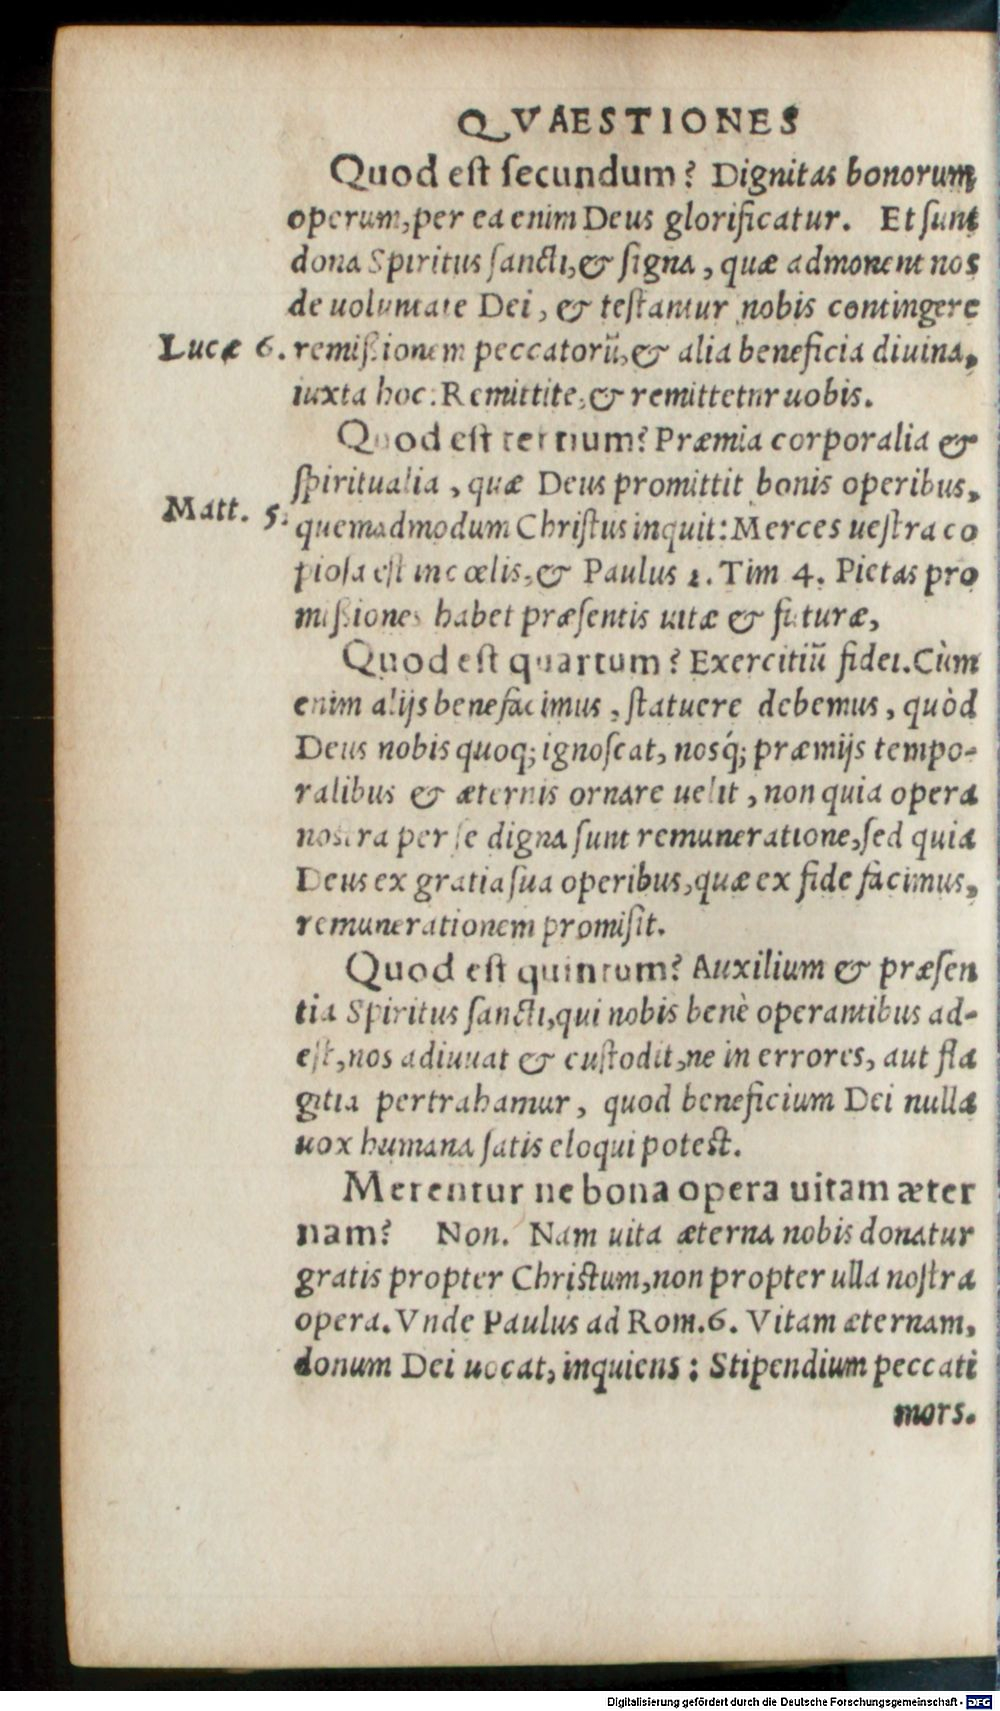 QVAESTIONES
Quod eſt ſecundum? Dignitas bonorum
operum, per ea enim Deus glorificatur. Et ſunt
dona Spiritus ſancti, & ſigna, quæ admonent nos
de uoluntate Dei, & teſtantur nobis contingere
Lucæ 6. remiſsionem peccatorũ, & alia beneficia diuina,
iuxta hoc: Remittite, & remittetur uobis.
Quod eſt tertium? Præmia corporalia &
ſpiritualia, quæ Deus promittit bonis operibus,
Matt. 5. quemadmodum Chriſtus inquit: Merces ueſtra co
pioſa eſt in cœlis, & Paulus 1. Tim 4. Pietas pro
miſsiones habet præſentis uitæ & futuræ,
Quod eſt quartum? Exercitiũ fidei. Cùm
enim alijs benefacimus, ſtatuere debemus, quòd
Deus nobis quoq; ignoſcat, nosq́; præmijs tempo-
ralibus & æternis ornare uelit, non quia opera
noſtra per ſe digna ſunt remuneratione, ſed quia
Deus ex gratia ſua operibus, quæ ex fide facimus,
remunerationem promiſit.
Quod eſt quintum? Auxilium & præſen
tia Spiritus ſancti, qui nobis benè operantibus ad-
eſt, nos adiuuat & cuſtodit, ne in errores, aut fla
gitia pertrahamur, quod beneficium Dei nulla
uox humana ſatis eloqui poteſt.
Merentur ne bona opera uitam æter
nam? Non. Nam uita æterna nobis donatur
gratis propter Chriſtum, non propter ulla noſtra
opera. Vnde Paulus ad Rom. 6. Vitam æternam,
donum Dei uocat, inquiens: Stipendium peccati
mors.
Digitalisierung gefördert durch die Deutsche Forschungsgemeinschaft - DFG